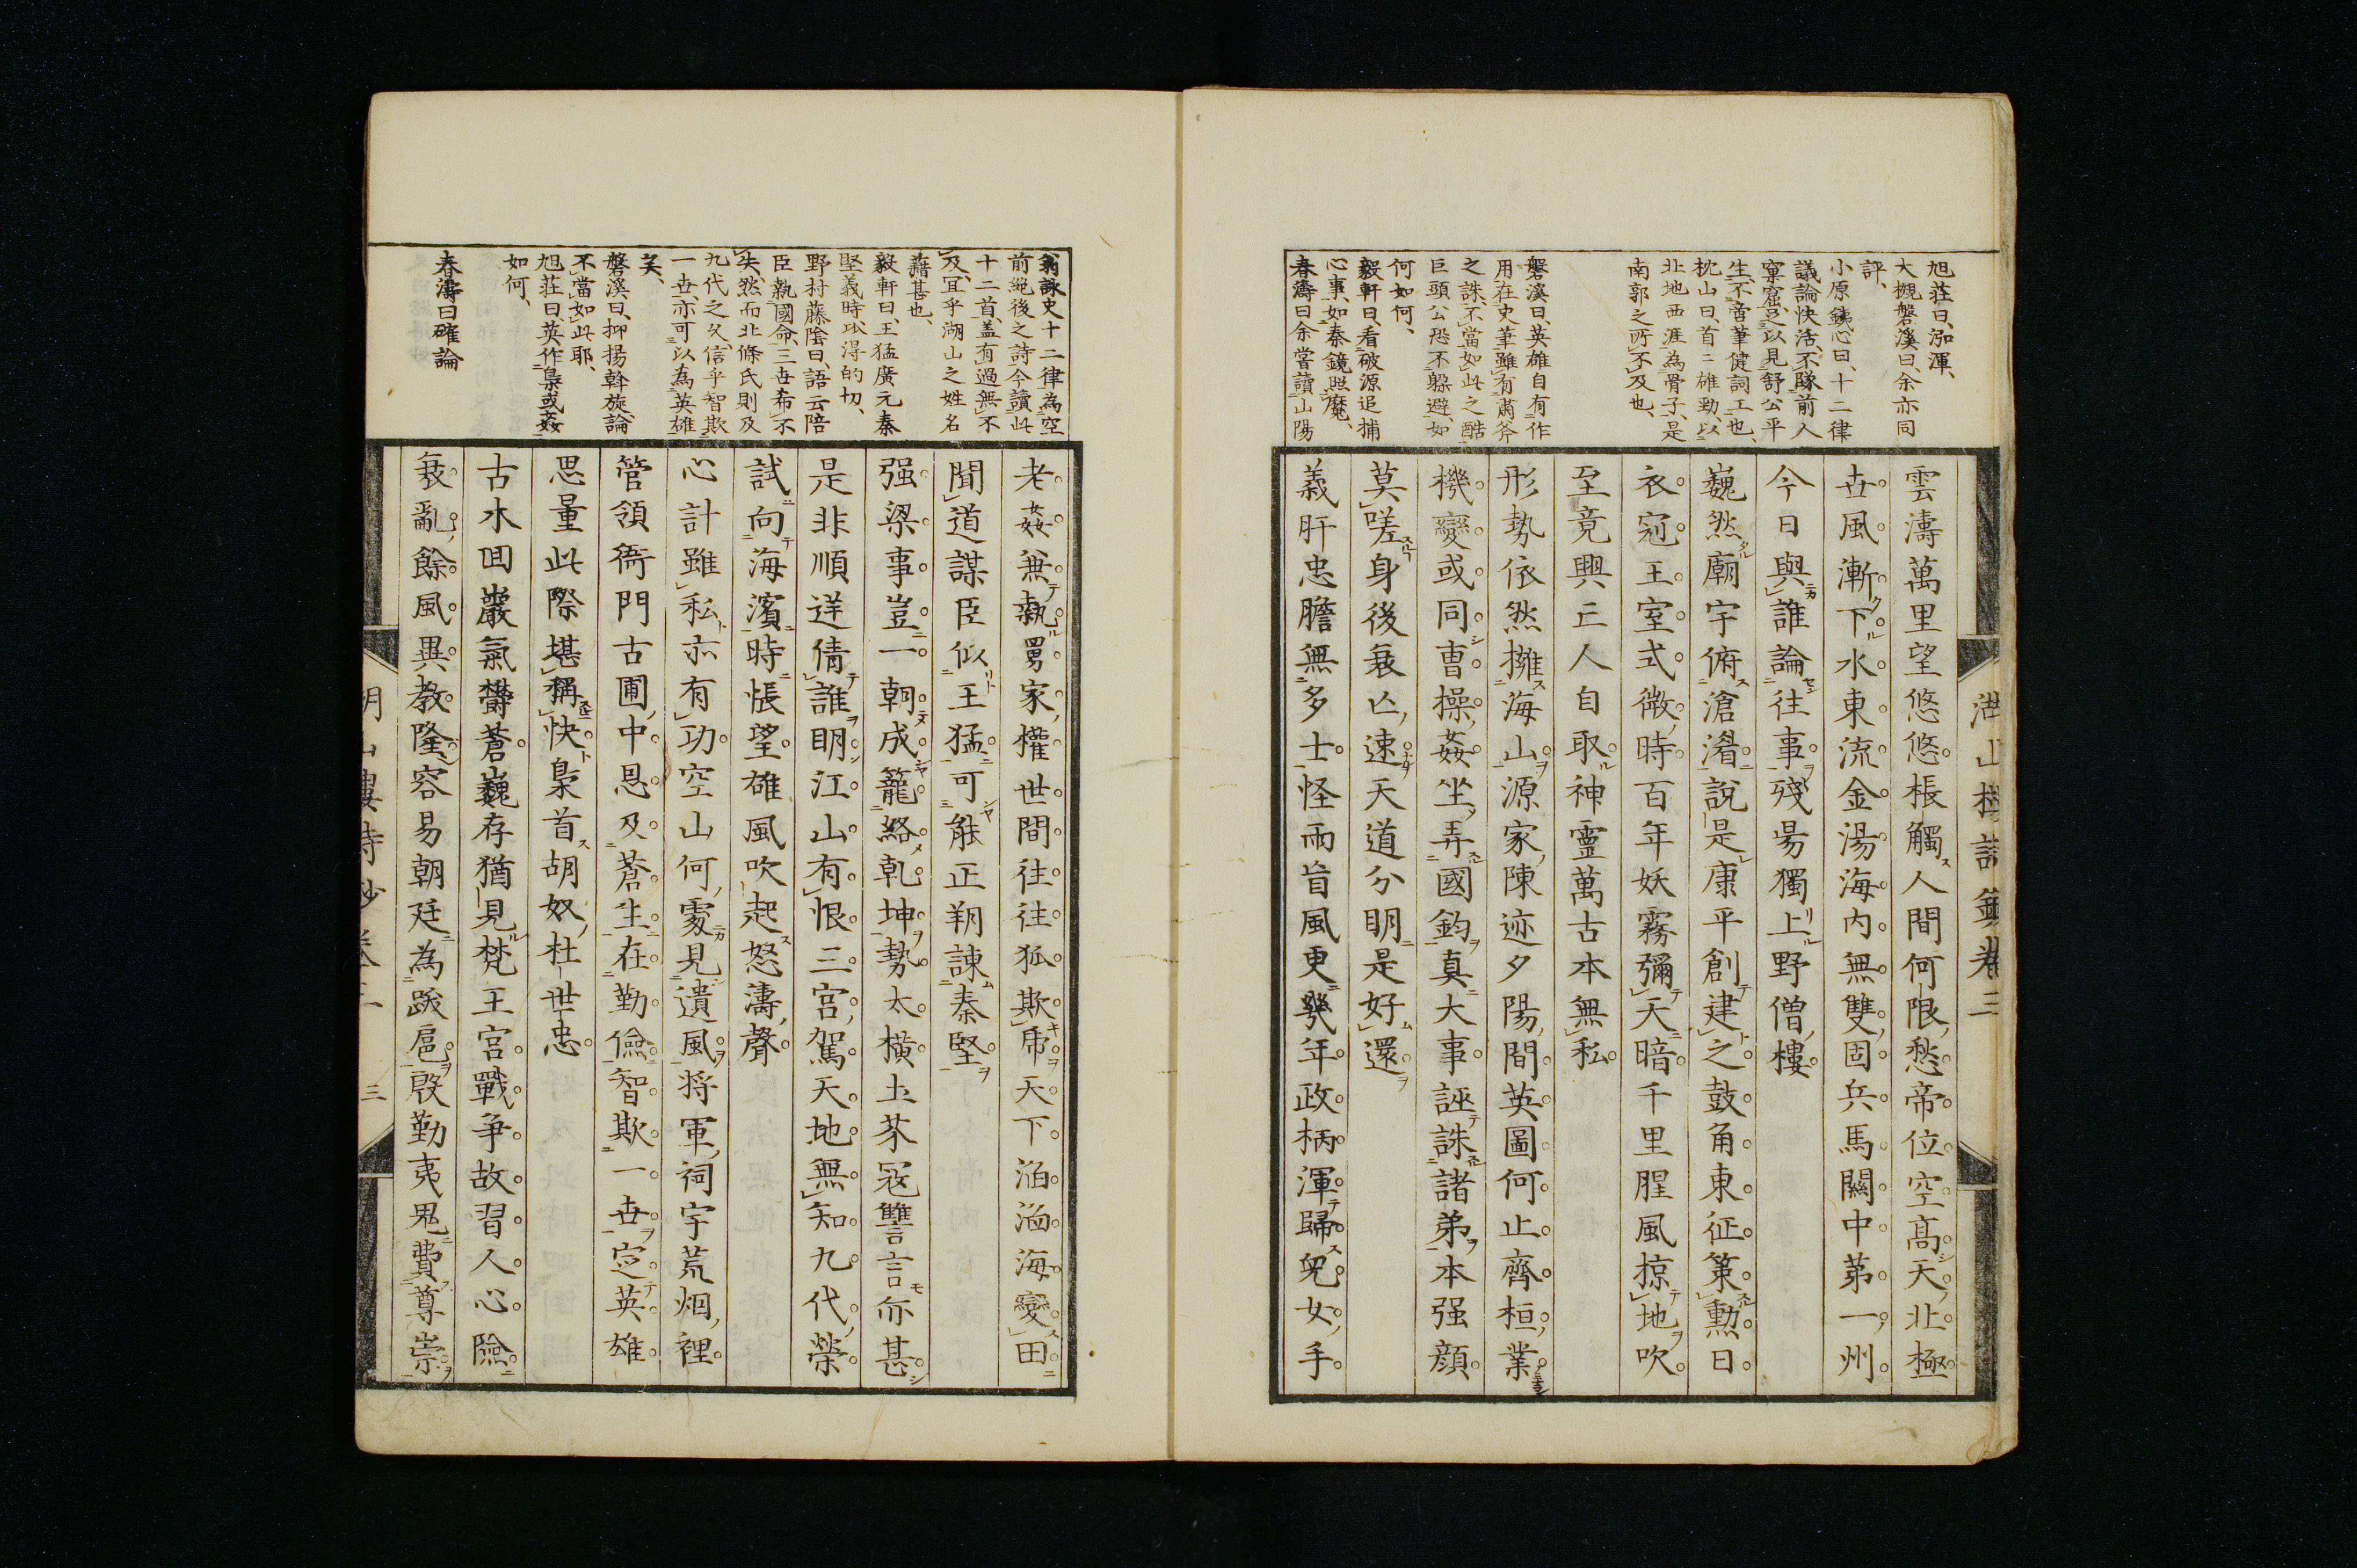 旭莊曰、泓渾、
大槻磐溪曰、余亦同
評、
小原鐵心曰、十二律
議論快活、不隊前人
窠窟、足以見舒公平
生、不啻筆健詞工也、
枕山曰、首二雄勁、以
北地西涯為骨子、是
南郭之所不及也、
磐溪曰、英雄自有作
用、在史筆雖有肅斧
之誅、不當如此之酷
巨頭公恐不躲避、如
何如何、
毅軒曰、看破源追捕
心事、如秦鏡照魔、
春濤曰余嘗讀山陽
雲濤萬里望悠悠悵觸人間何限愁帝位空高天北極
世風漸下水東流金湯海內無雙固兵馬關中第一州
今日與誰論往事殘昜獨上野僧樓
巍然廟宇俯滄溍說是康平創建之鼓角東征策勳日
衣冠王室式微時百年妖霧彌天暗千里腥風掠地吹
至竟興亡人自取神靈萬古本無私
形勢依然擁海山源家陳迹夕陽間英圖何止齊桓業
機變或同曹操姦坐弄國鈞真大事誣誅諸弟本强顏
莫嗟身後衰亡速天道分明是好還
義肝忠膽無多士怪雨盲風更幾年政柄渾歸兒女手
湖山樓詩鈔卷三
翁詠史十二律為空
前絕後之詩今讀此
十二首、盖有過無不
及、宜乎湖山之姓名
藉甚也、
毅軒曰、王猛廣元秦
堅義時狀得的切、
野村藤陰曰、語云陪
臣執國命、三世希不
失、然而北條氏則及
九代之久、信乎智欺
一世亦可以為英雄
矣、
磐溪曰、抑揚斡旋、論
不當如此耶、
旭莊曰、英作梟或姦
如何、
春濤曰確論
老姦兼執舅家權世間往往狐欺虎天下滔滔海變田
聞道謀臣似王猛可能正朔諫秦堅
强梁事豈一朝成籠絡乾坤勢太橫土芥冦讐言亦甚
是非順逆倩誰明江山有恨三宮駕天地無知九代榮
試向海濱時悵望雄風吹起怒濤聲
心計雖私亦有功空山何處見遺風將軍祠宇荒烟裡
管領衙門古圃中恩及蒼生在勤儉智欺一世定英雄
思量此際堪稱快梟首胡奴杜世忠
古水回巖氣欝蒼巍存猶見梵王宮戰爭故習人心險
衰亂餘風異教隆容易朝廷為跋扈殷勤夷鬼費尊崇
湖山樓詩鈔卷三 三